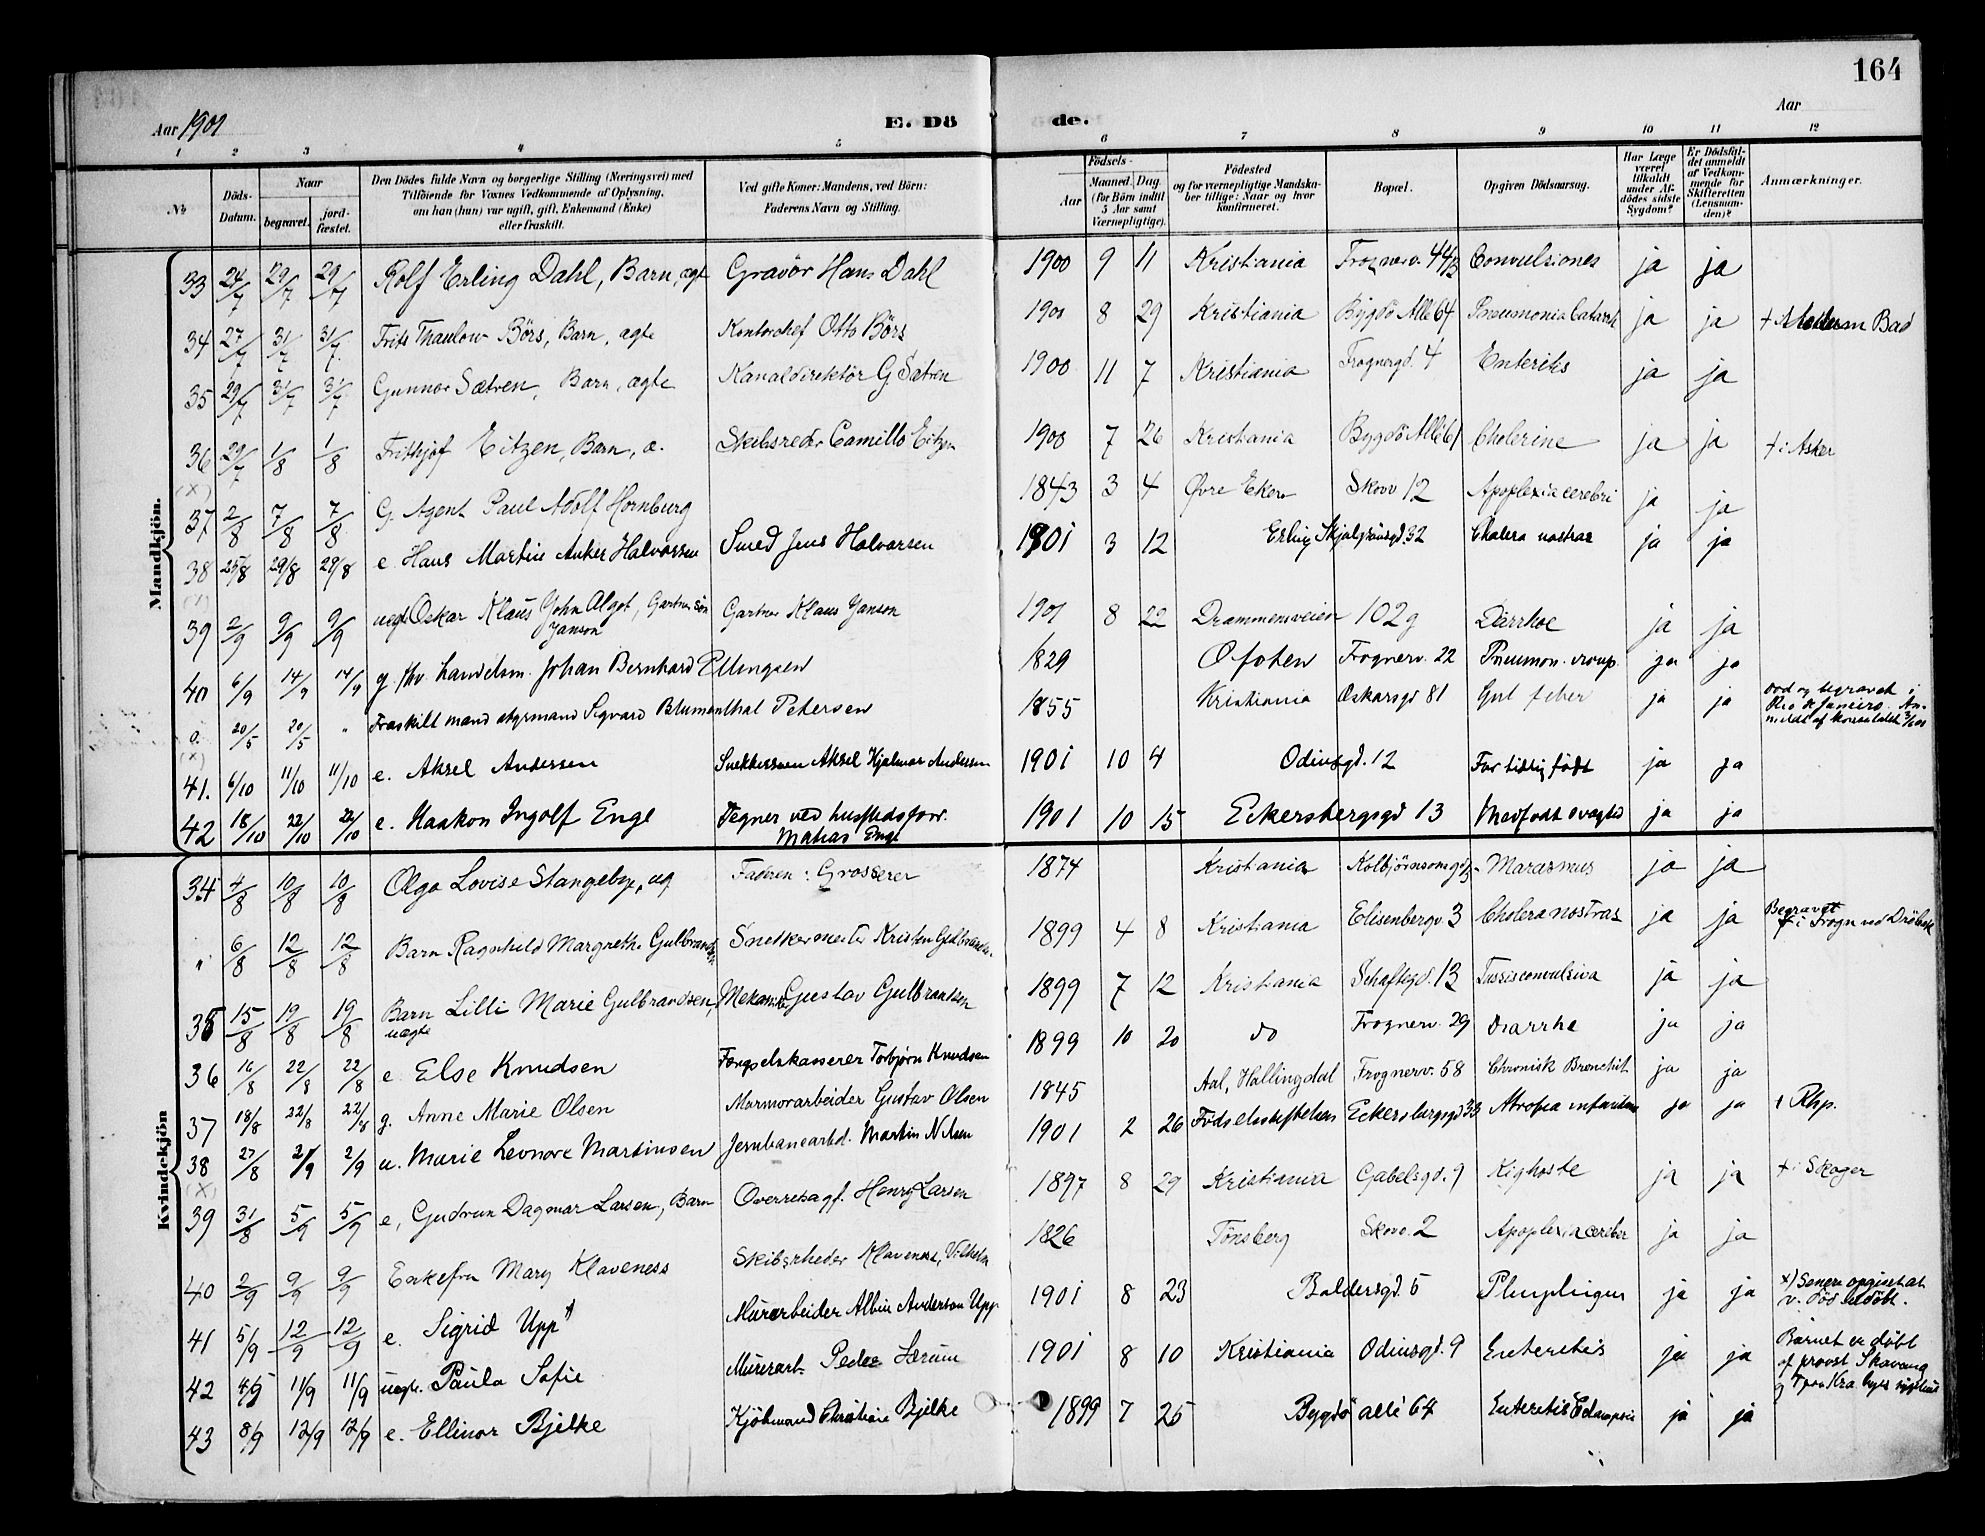 164
Aar 1901
E. Dö
de.
Aar
1 2 3 4 5 6 7 8 9 10 11 12
No
Döds-Datum.
Naar
begravet.
jord-fæstet.
Den Dödes fulde Navn og borgerlige Stilling (Næringsvei) med
Tilföiende for Voxnes Vedkommende af Oplysning,
om han (hun) var ugift, gift, Enkemand (Enke)
eller fraskilt.
Ved gifte Koner: Mandens, ved Börn:
Faderens Navn og Stilling.
Födsels-
Aar
Maaned. Dag
(for Börn indtil
5 Aar samt
Værnepligtige).
Födested
og for værnepligtige Mandska-
ber tillige: Naar og hvor
konfirmeret.
Bopæl.
Opgiven Dödsaarsag.
Har Læge
været
tilkaldt
under Af-
dödes sidste
Sygdom?
Er Dödsfal-
det anmeldt
af Vedkom-
mende for
Skifteretten
(Lensman-
den)?
Anmærkninger.
Mandkjön.
33 24/7 29/7 29/7 Rolf Erling Dahl, Barn, ægte Gravör Hans Dahl 1900 9 11 Kristiania Frognerv. 44B Convulsiones ja ja
34 27/7 31/7 31/7 Frits Thaulow Börs, Barn, ægte Kontorchef Otto Börs 1901 8 29 Kristiania Bygdö Allé 64 Pneumonia Catarrh ja ja + Bad
35 29/7 31/7 31/7 Gunnar Sætren, Barn, ægte Kanaldirektör G Sætren 1900 11 7 Kristiania Frognergd. 4 Enteritis ja ja
36 29/7 1/8 1/8 Frithjof Eitzen, Barn, æ. Skibsreder Camillo Eitzen 1900 7 26 Kristiania Bygdö Allé 61 Cholerine ja ja + i Asker
(x)
37 2/8 7/8 7/8 G. Agent Paul Adolf Hornburg 1843 3 4 Övre Eker Skovv 12 Apoplexia cerebri ja ja
38 25/8 29/8 29/8 e. Hans Martin Anker Halvorsen Smed Jens Halvorsen 1901 3 12 Erling Skjalgsönsgd. 32 Cholera nostras ja ja
39 2/9 9/9 9/9 uægte Oskar Klaus John Algot, Gartner Sön Gartner Klaus Janson 1901 8 22 Drammensveien 102 g Diarrhoe ja ja
Janson
40 6/9 14/9 14/9 g. fhv. handelsm. Johan Bernhard Ellingsen 1829 Ofoten Frognerv. 22 Pneumon. croup. ja ja
o. 20/5 20/5 " Fraskilt mand styrmand Sigvard Blumenthal Petersen 1855 Kristiania Oskarsgd 81 Gul feber ja ja död og begravet i
Rio de Janeiro. An-
meldt af konsulatet
(x)
41. 6/10 11/10 11/10 e. Aksel Andersen Snekkersven Aksel Hjalmar Andersen 1901 10 4 Odinsgd. 12 For tidlig född ja ja
42 18/10 22/10 22/10 e. Haakon Ingolf Enge Tegner ved husflidsforr. 1901 10 15 Eckersbergsgd 13 Medfödt svaghed ja ja
Matias Enge
Kvindekjön
34 4/8 10/8 10/8 Olga Lovise Stangebye, ug Faderen: Grosserer 1874 Kristiania Kolbjörnsensgd Marasmus ja ja
" 6/8 12/8 12/8 Barn Ragnhild Margrethe Gulbrandsen Snekkermester Kristen Gulbrandsen 1899 4 8 Kristiania Elisenbergv 3 Cholera nostras ja ja Begravet
i Frogn ved Dröbak
35 15/8 19/8 19/8 Barn Lilli Marie Gulbrandsen, Mekaniker Gustav Gulbrandsen 1899 7 12 Kristiania Schaftegd. 13 Tussis convulsiva ja ja
uægte
36 16/8 22/8 22/8 e. Else Knudsen Fængselskasserer Torbjørn Knudsen 1899 10 20 do Frognerv. 29 Diarrhe ja ja
37 18/8 22/8 22/8 g. Anne Marie Olsen Marmorarbeider Gustav Olsen 1845 Aal, Hallingdal Frognerv. 58 Chronisk Bronchit ja ja
38 27/8 2/9 2/9 u. Marie Leonore Martinsen Jernbanearbd. Martin Nilsen 1901 2 26 Födselsstiftelsen Eckersbergsgd 33 Atrofia infantum ja ja i Rhp.
(x)
39 31/8 5/9 5/9 e, Gudrun Dagmar Larsen, Barn Overretssagf. Henry Larsen 1897 8 29 Kristiania Gabelsgd. 9 Kighoste ja ja + i Skoger
40 2/9 9/9 9/9 Enkefru Mary Klaveness Skibsrheder Klaveness, Vilhelm 1826 Tönsberg Skovv. 2 Apoplexia cerebri ja ja
41 5/9 12/9 12/9 e. Sigrid Upp x) Murarbeider Albin Anderson Upp. 1901 8 23 Baldersgd. 5 ja ja x) Senere opgivet at
v. död udöbt.
42 8/9 11/9 11/9 uægte. Paula Sofie Murerarb. Peder Lærum 1901 8 10 Kristiania Odinsgd. 9 Enteritis ja ja Barnet er döbt
af provst Skavang
43 8/9 12/9 12/9 e. Ellinor Bjelke Kjöbmand Christian Bjelke 1899 7 25 Bygdö allé 64 Enteritis Eclampsie ja ja